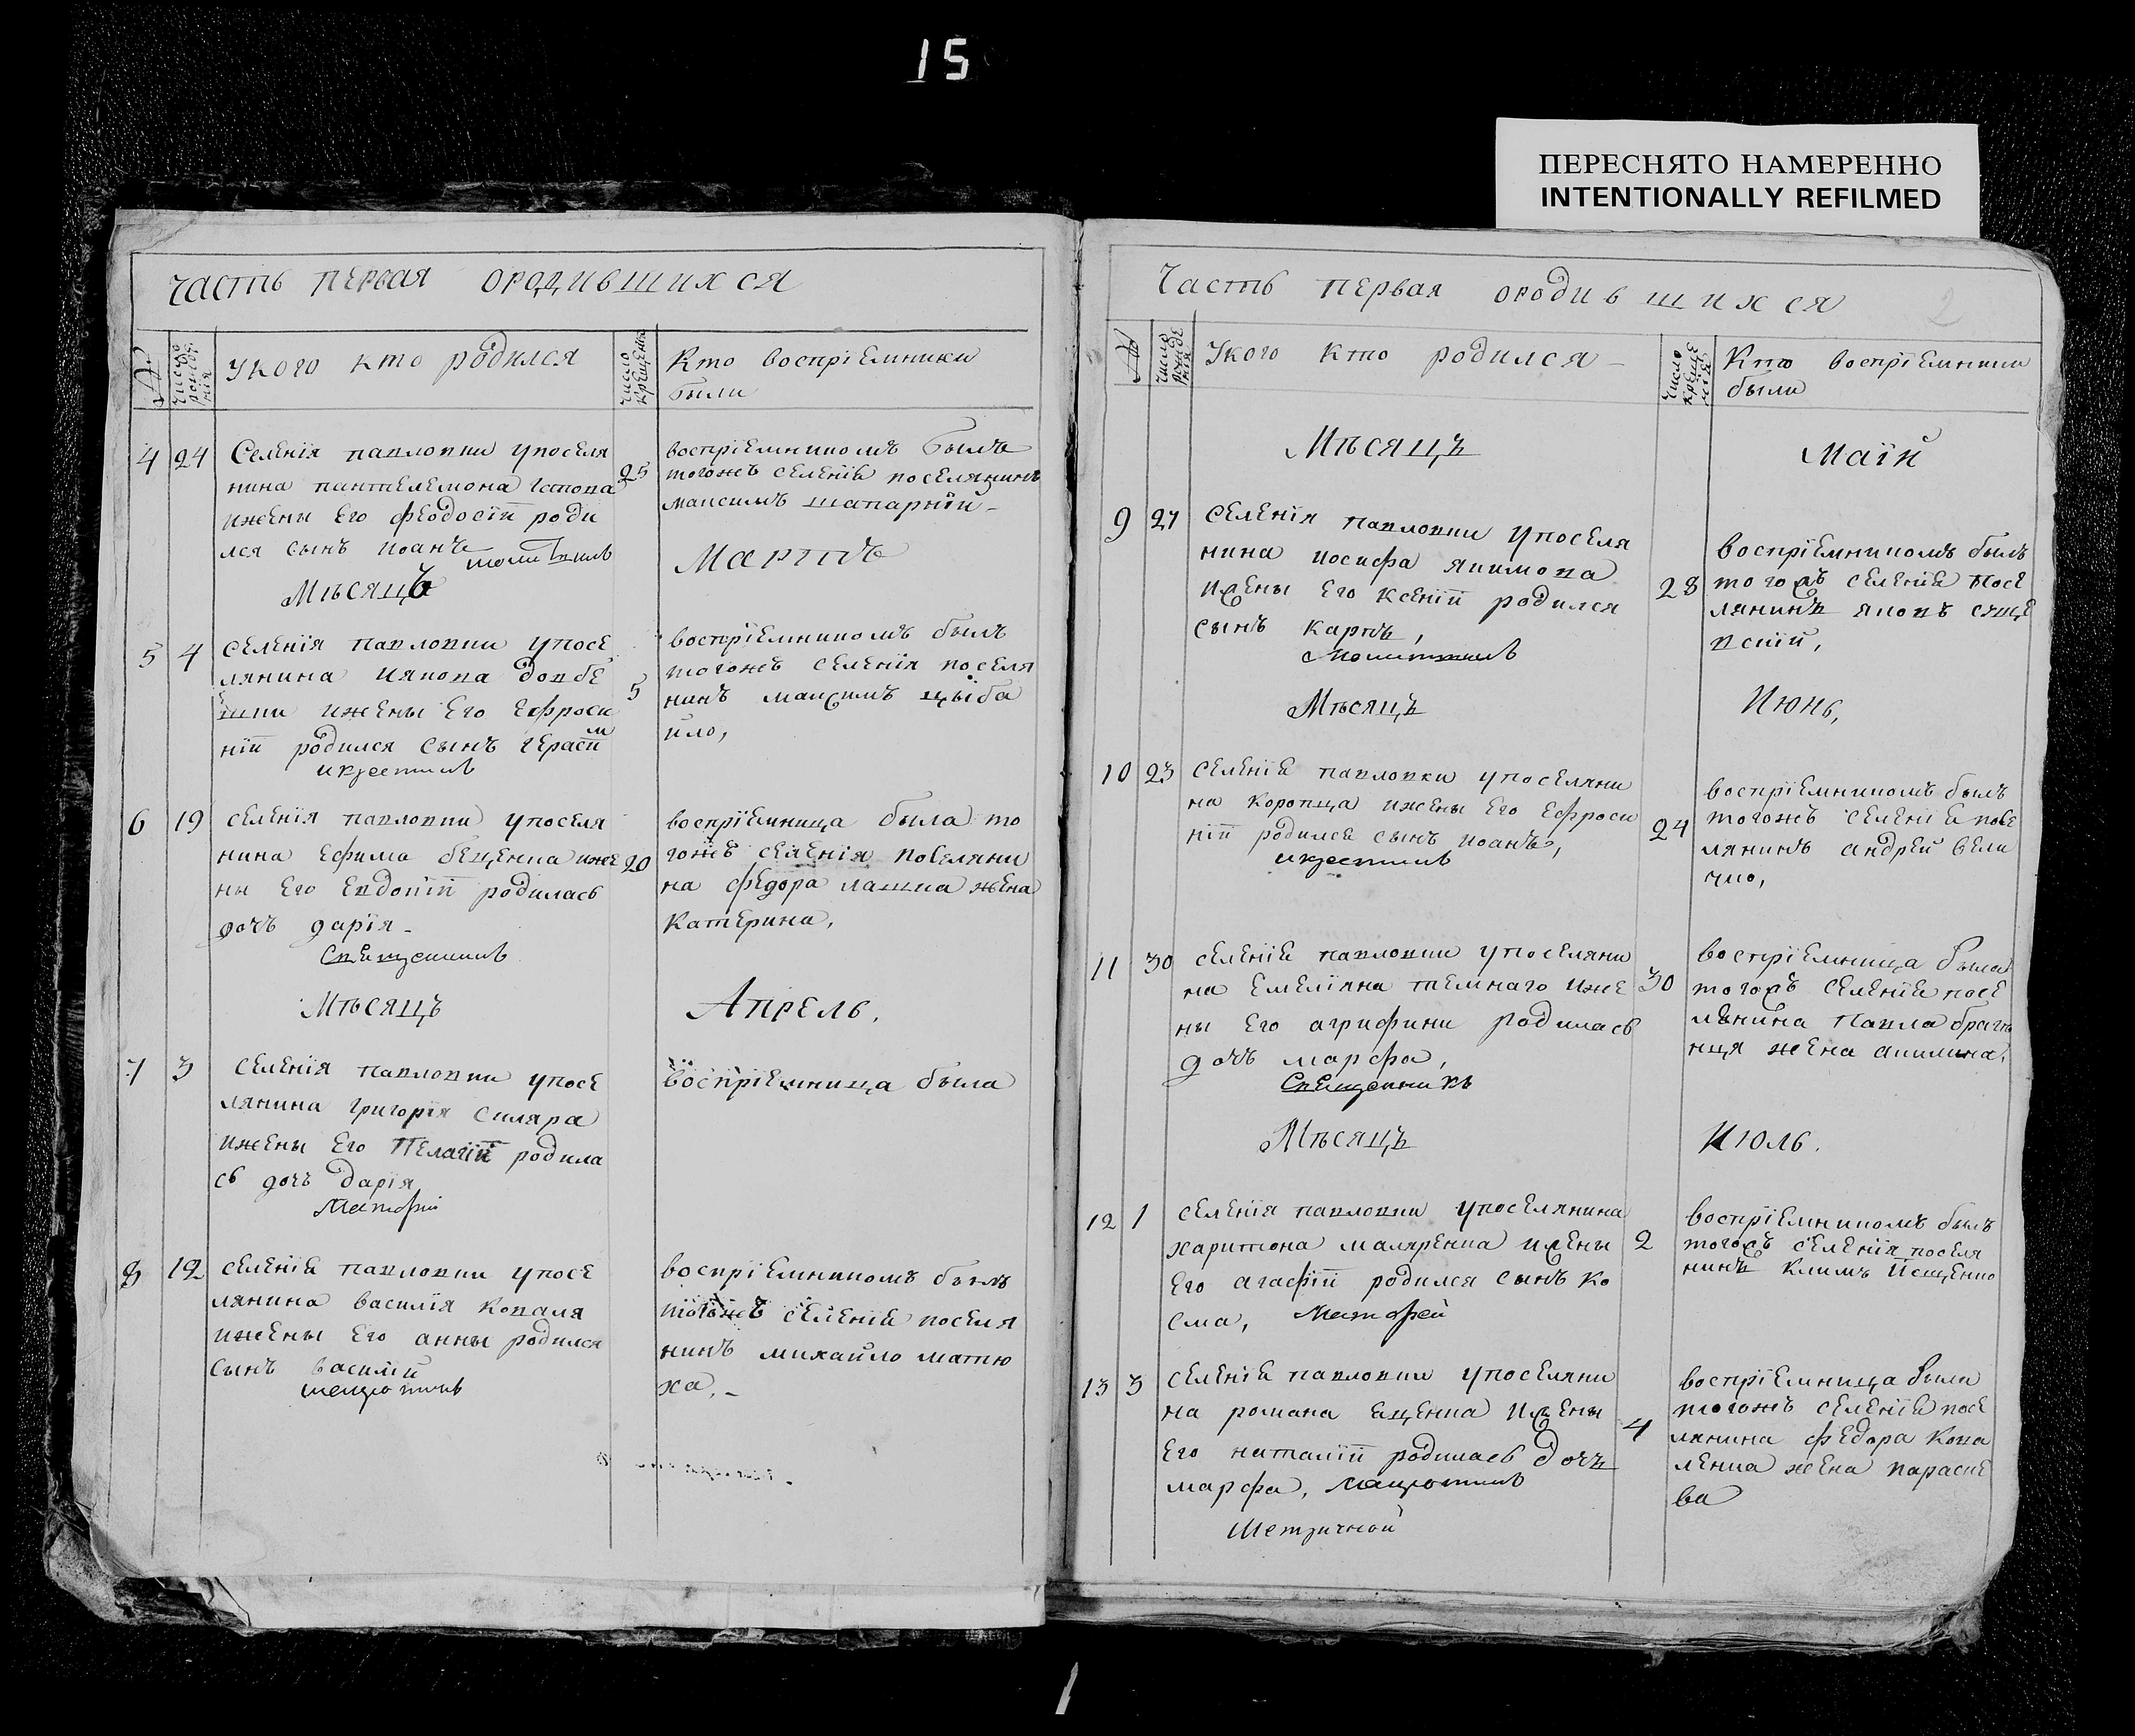 15
ПЕРЕСНЯТО НАМЕРЕННО
INTENTIONALLY REFILMED
Часть первая ородившихся
№
число рожде. нія
Укого кто родился
число крещенія
Кто воспріемники
были
4 24
Селенія павловки упоселя
нина пантелемона
ижены Его феодосіи роди
лся сынъ иоанъ
25
воспріемникомъ былъ
тогожъ селенія поселянинъ
максимъ шапарній
Мѣсяцъ
мартъ
5 4
селенія павловки упосе
лянина иякова довбе
шки ижены Его Ефроси
ніи родился сынъ герасим
икрестилъ
5
воспріемникомъ былъ
тогожъ селенія поселя
нинъ максимъ цыба
ило,
6 19
селенія павловки упоселя
нина Ефима беценка иже
ны Его Евдокіи родилась
дочъ дарія
20
воспріемница была то
гожъ селенія поселяни
на федора лашка жена
Катерина,
Мѣсяцъ
Апрель.
7 3
селенія павловки упосе
лянина григорія скляра
ижены Его Пелагіи родила
сь дочъ дарія
воспріемница была
8 12
селенія павловки упосе
лянина василія коваля
ижены Его анны родился
сынъ василій
воспріемникомъ былъ
тогожъ селенія поселя
нинъ михайло матю
ха,
Часть первая ородившихся
2
№
число рожденія
Укого кто родился
число крещенія
Кто воспріемники
были
Мѣсяцъ
Маій
9 27
селенія павловки упоселя
нина иосифа якимова
ижены Его ксеніи родился
сынъ карпъ,
28
воспріемникомъ былъ
тогожъ селенія посе
лянинъ яковъ сяще
вскій,
Мѣсяцъ
Июнь,
10 23
селенія павловки упоселяни
на коропца ижены Его Ефроси
ніи родился сынъ иоанъ,
икрестилъ
24
воспріемникомъ былъ
тогожъ селенія посе
лянинъ андрей вели
чко,
11 30
селенія павловки упоселяни
на Емеліяна темнаго иже
ны Его агрифини родилась
дочъ марфа,
Священникъ
30
воспріемница была
тогожъ селенія посе
лянина павла брагы
нця жена акилина,
Мѣсяцъ
Июль.
12 1
селенія павловки упоселянина
харитона маляренка ижены
Его агафіи родился сынъ ко
сма,
2
воспріемникомъ былъ
тогожъ селенія поселя
нинъ климъ Йещенко
13 3
селенія павловки упоселяни
на романа Еценка ижены
Его наталіи родилась дочъ
марфа,
Метричной
4
воспріемница была
тогожъ селенія посе
лянина федора кова
ленка жена параске
ва
1